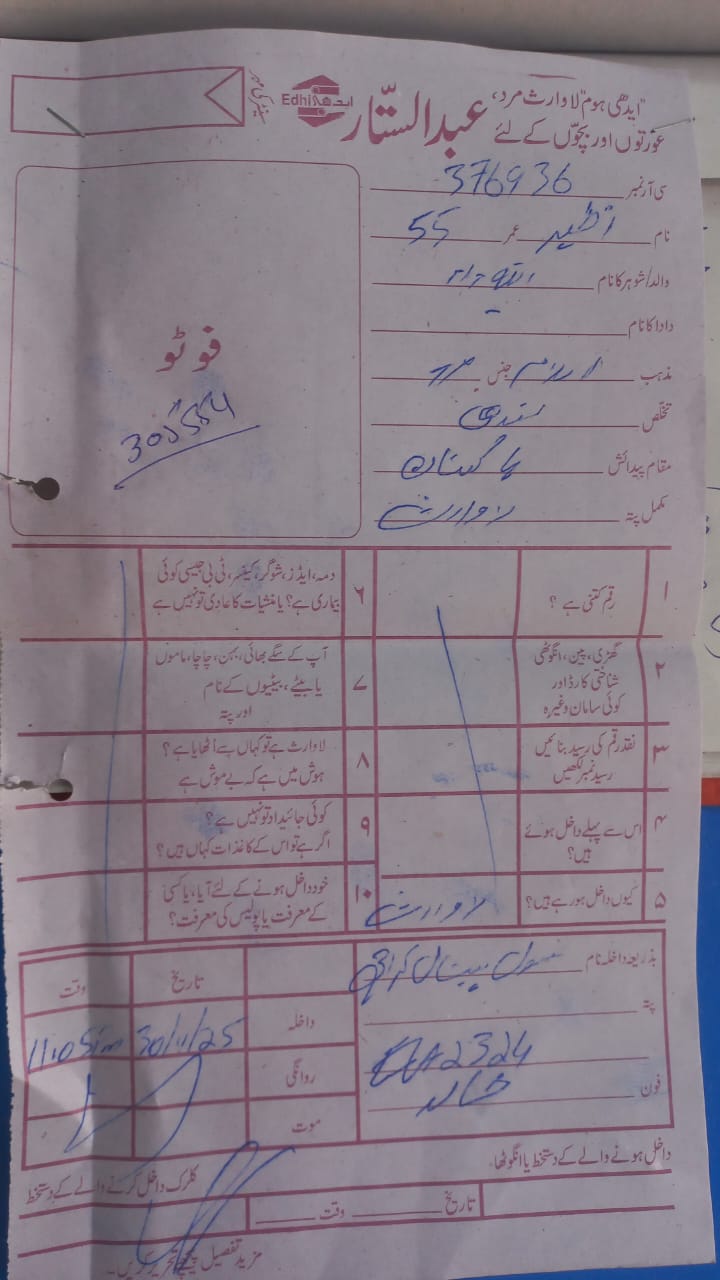 "ایدھی ہوم" لاوارث مرد،
عورتوں اور بچّوں کے لئے
عبدالستّار
Edhi ایدھی
سینٹر کی مہر
سی آر نمبر 376936
نام عمر 55
والد/شوہر کا نام اللہ
دادا کا نام -
مذہب اسلام جنس مرد
تخلص سندھی
مقام پیدائش پاکستان
مکمل پتہ لاوارث
فوٹو
305554
۱ رقم کتنی ہے ؟
۲ گھڑی، پین، انگوٹھی
شناختی کارڈ اور
کوئی سامان وغیرہ
۳ نقد رقم کی رسید بنائیں
رسید نمبر لکھیں
۴ اس سے پہلے داخل ہوئے
ہیں؟
۵ کیوں داخل ہو رہے ہیں؟ لاوارث
۶ دمہ، ایڈز، شوگر، کینسر، ٹی بی جیسی کوئی
بیماری ہے؟ یا منشیات کا عادی تو نہیں ہے
۷ آپ کے سگے بھائی، بہن، چاچا، ماموں
یا بیٹے، بیٹیوں کے نام
اور پتہ
۸ لاوارث ہے تو کہاں سے اٹھایا ہے؟
ہوش میں ہے کہ بے ہوش ہے
۹ کوئی جائیداد تو نہیں ہے؟
اگر ہے تو اس کے کاغذات کہاں ہیں؟
۱۰ خود داخل ہونے کے لئے آیا، یا کسی
کے معرفت یا پولیس کی معرفت؟
بذریعہ داخلہ نام سول ہسپتال کراچی
پتہ
2324
فون خالد
تاریخ وقت
داخلہ 30/11/25
روانگی
موت
داخل ہونے والے کے دستخط یا انگوٹھا۔
کلرک داخل کرنے والے کے دستخط
تاریخ وقت
مزید تفصیل پیچھے تحریر کریں۔